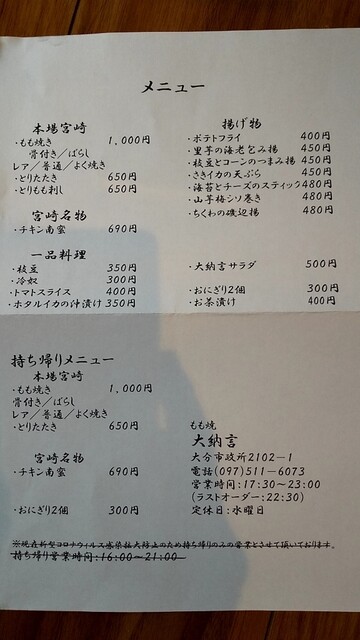 メニュー
本場宮崎
・もも焼き 1,000円
骨付き/ばらし
レア/普通/よく焼き
・とりたたき 650円
・とりもも刺し 650円
宮崎名物
・チキン南蛮 690円
一品料理
・枝豆 350円
・冷奴 300円
・トマトスライス 400円
・ホタルイカの沖漬け 350円
揚げ物
・ポテトフライ 400円
・里芋の海老包み揚 450円
・枝豆とコーンのつまみ揚 450円
・さきイカの天ぷら 450円
・海苔とチーズのスティック 480円
・山芋梅シソ巻き 480円
・ちくわの磯辺揚 480円
・大納言サラダ 500円
・おにぎり2個 300円
・お茶漬け 400円
持ち帰りメニュー
本場宮崎
・もも焼き 1,000円
骨付き/ばらし
レア/普通/よく焼き
・とりたたき 650円
宮崎名物
・チキン南蛮 690円
・おにぎり2個 300円
もも焼
大納言
大分市政所2102-1
電話(097)511-6073
営業時間:17:30~23:00
(ラストオーダー:22:30)
定休日:水曜日
※現在新型コロナウィルス感染拡大防止のため持ち帰りのみの営業とさせて頂いております。
持ち帰り営業時間:16:00~21:00